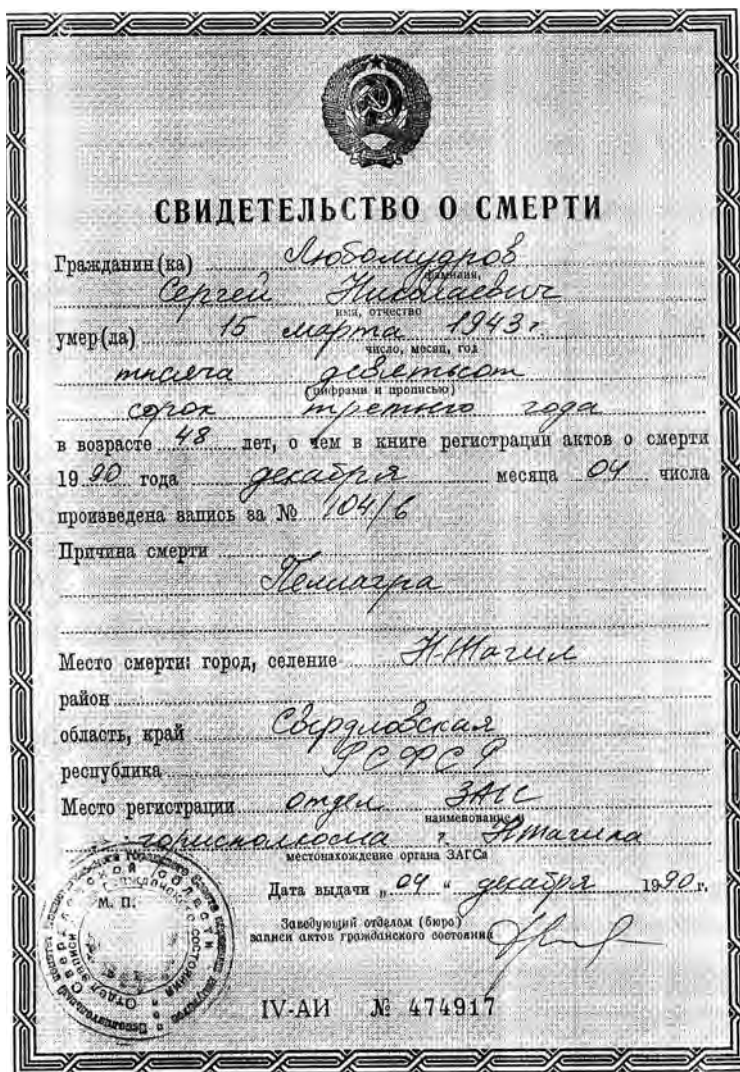 СВИДЕТЕЛЬСТВО О СМЕРТИ
Гражданин(ка) Любомудров
фамилия,
Сергей Николаевич
имя, отчество
умер(ла) 15 марта 1943 г.
число, месяц, год
тысяча девятьсот
(цифрами и прописью)
сорок третьего года
в возрасте 48 лет, о чем в книге регистрации актов о смерти
1990 года декабря месяца 04 числа
произведена запись за № 104/6
Причина смерти
Пеллагра
Место смерти: город, селение Н.Тагил
район
область, край Свердловская
республика РСФСР
Место регистрации отдел ЗАГС
наименование и
горисполкома г. Н.Тагила
местонахождение органа ЗАГСа
Дата выдачи „04“ декабря 1990 г.
М. П.
Заведующий отделом (бюро)
записи актов гражданского состояния
IV-АИ № 474917